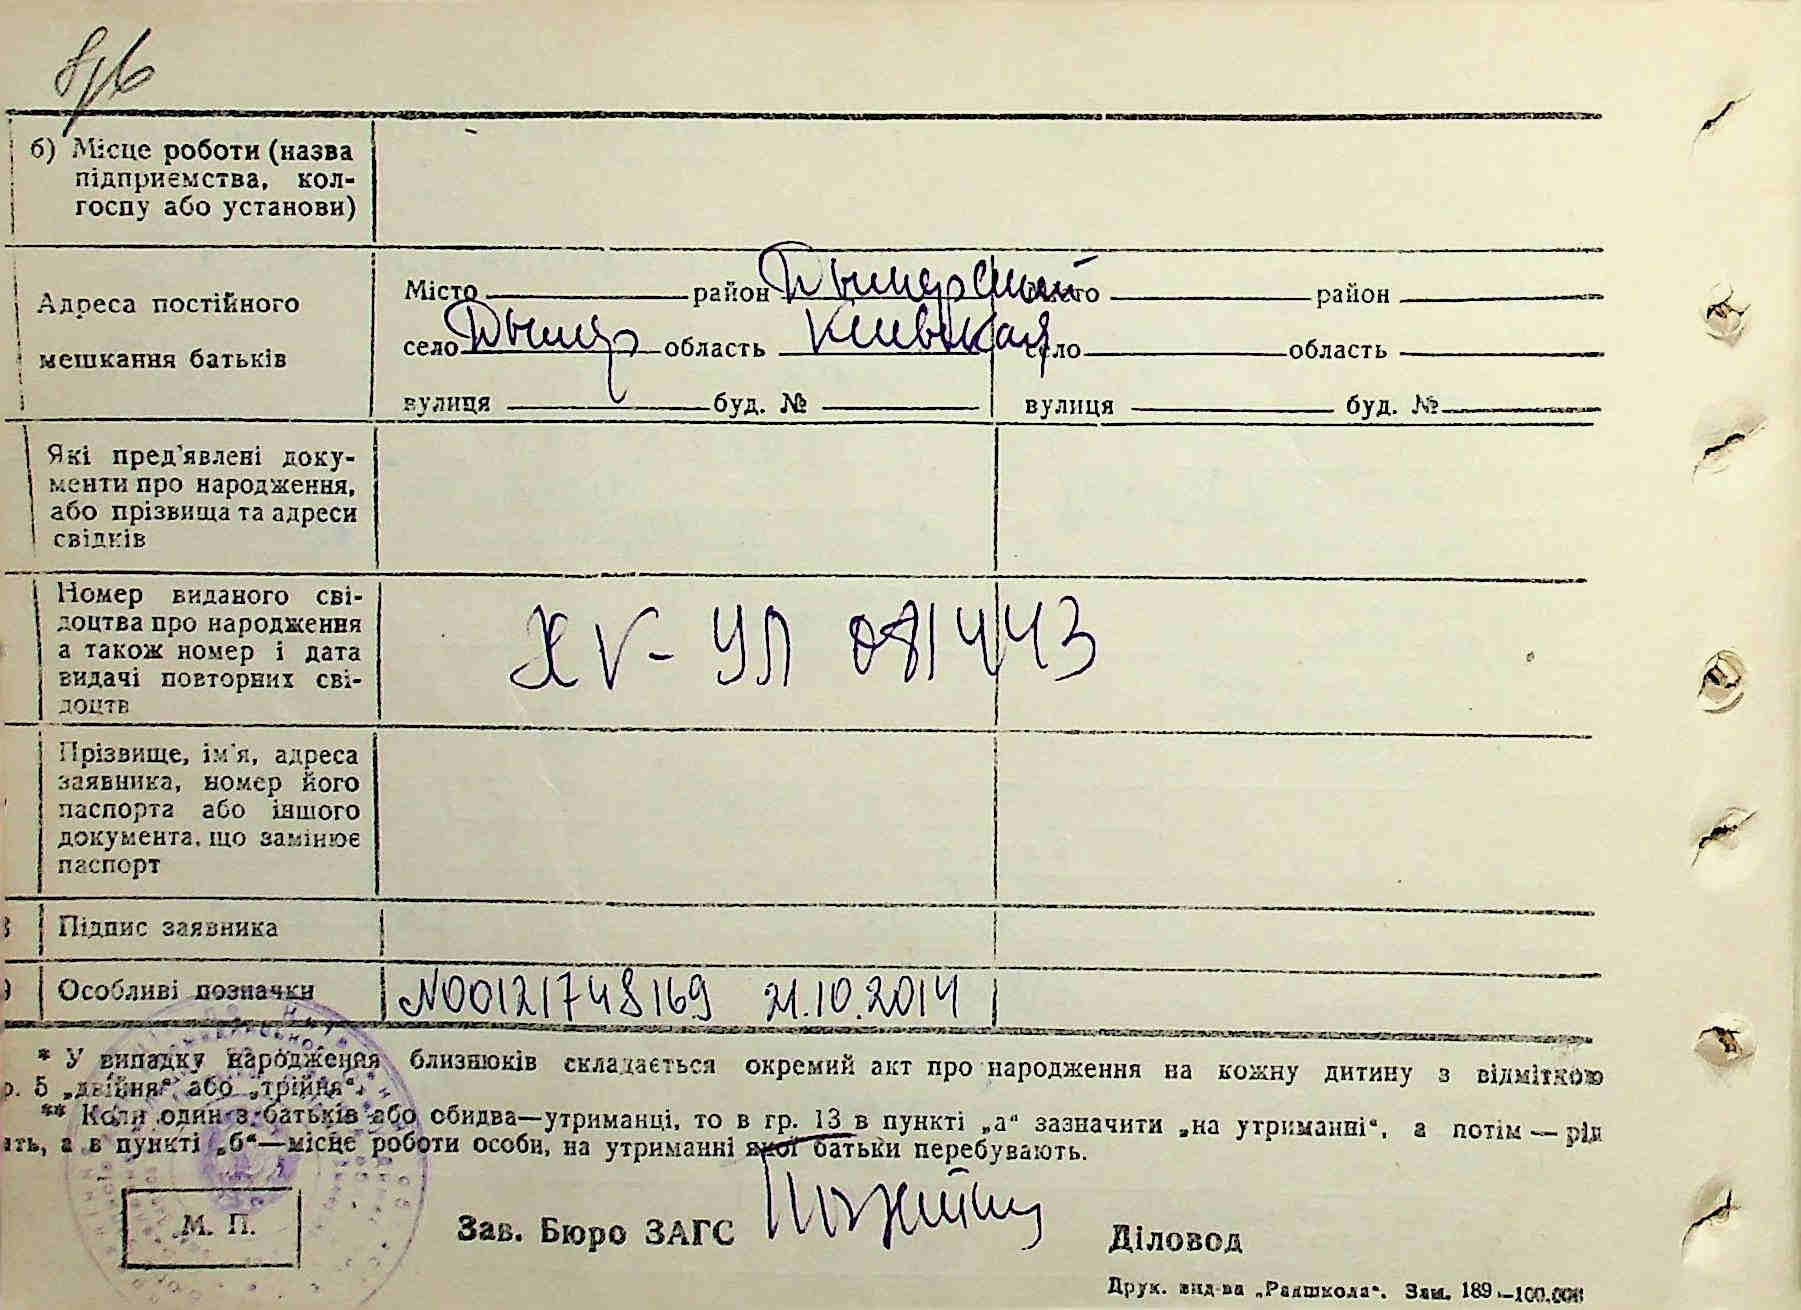 б) Місце роботи (назва
підприємства, кол-
госпу або установи)
Адреса постійного
мешкання батьків
Місто район Дымерский Місто район
село Дымер область Киевская село область
вулиця буд. № вулиця буд. №
Які пред'явлені доку-
менти про народження,
або прізвища та адреси
свідків
Номер виданого сві-
доцтва про народження
а також номер і дата
видачі повторних сві-
доцтв
XV-УЛ 081443
Прізвище, ім'я, адреса
заявника, номер його
паспорта або іншого
документа, що замінює
паспорт
Підпис заявника
Особливі позначки
N00121748169 21.10.2014
* У випадку народження близнюків складається окремий акт про народження на кожну дитину з відміткою
р. 5 „двійня“ або „трійня“.
** Коли один з батьків або обидва—утриманці, то в гр. 13 в пункті „а“ зазначити „на утриманні“, а потім — рід
ять, а в пункті „б“—місце роботи особи, на утриманні якої батьки перебувають.
М. П.
Зав. Бюро ЗАГС
Діловод
Друк. вид-ва „Радшкола“. Зам. 189.—100.000